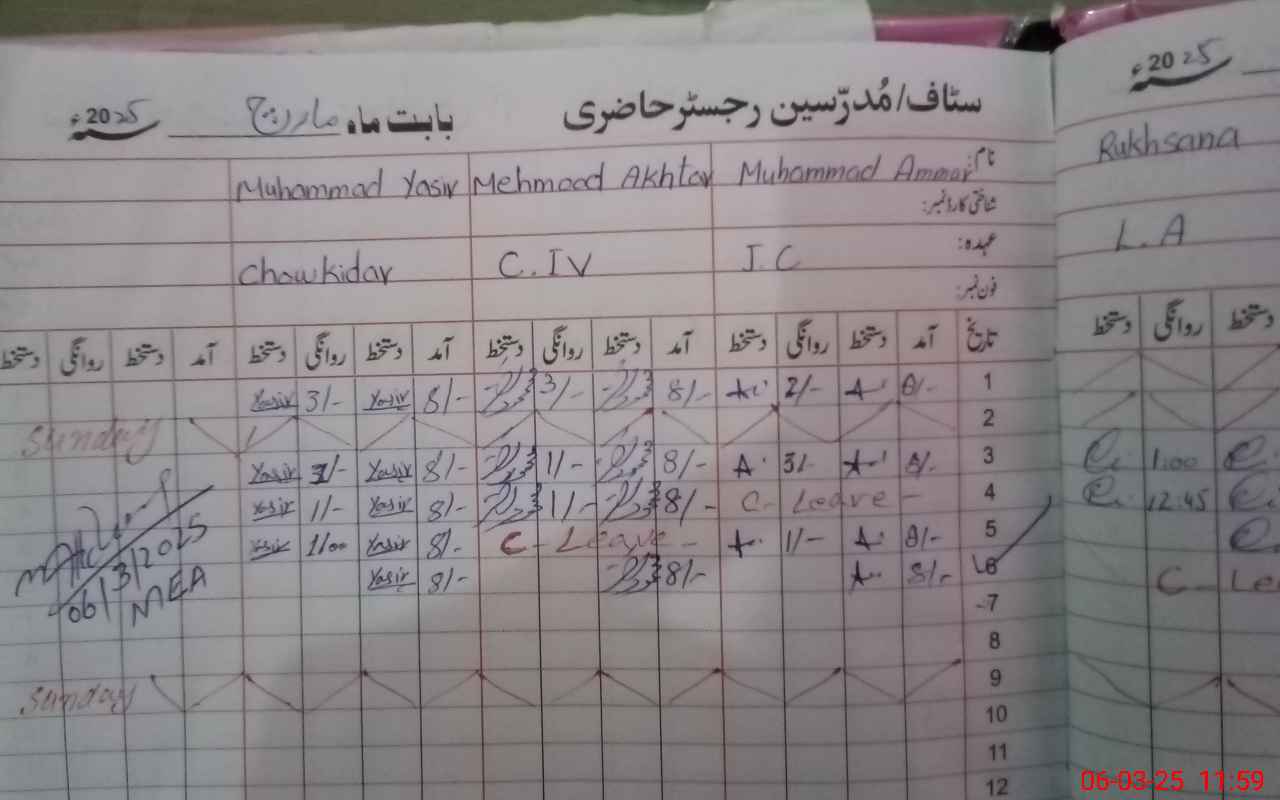 سٹاف/مُدرّسین رجسٹر حاضری بابت ماہ مارچ سنہ 2025ء
سنہ 2025ء
نام: Muhammad Ammar Mehmood Akhtar Muhammad Yasir
Rukhsana
شناختی کارڈ نمبر:
عہدہ: J.C C.IV Chowkidar
L.A
فون نمبر:
تاریخ آمد دستخط روانگی دستخط آمد دستخط روانگی دستخط آمد دستخط روانگی دستخط آمد دستخط روانگی دستخط
دستخط روانگی دستخط
1 8/- A 2/- A 8/- 3/- 8/- Yasir 3/- Yasir
2 Sunday
3 8/- A 3/- A 8/- 1/- 8/- Yasir 3/- Yasir
1:00
4 C- Leave - 8/- 1/- 8/- Yasir 1/- Yasir
12:45
5 8/- A 1/- A C- Leave - 8/- Yasir 1/00 Yasir
6 8/- A 8/- 8/- Yasir
C- Le
06/3/2025
MEA
7
8
9 Sunday
10
11
12
06-03-25 11:59